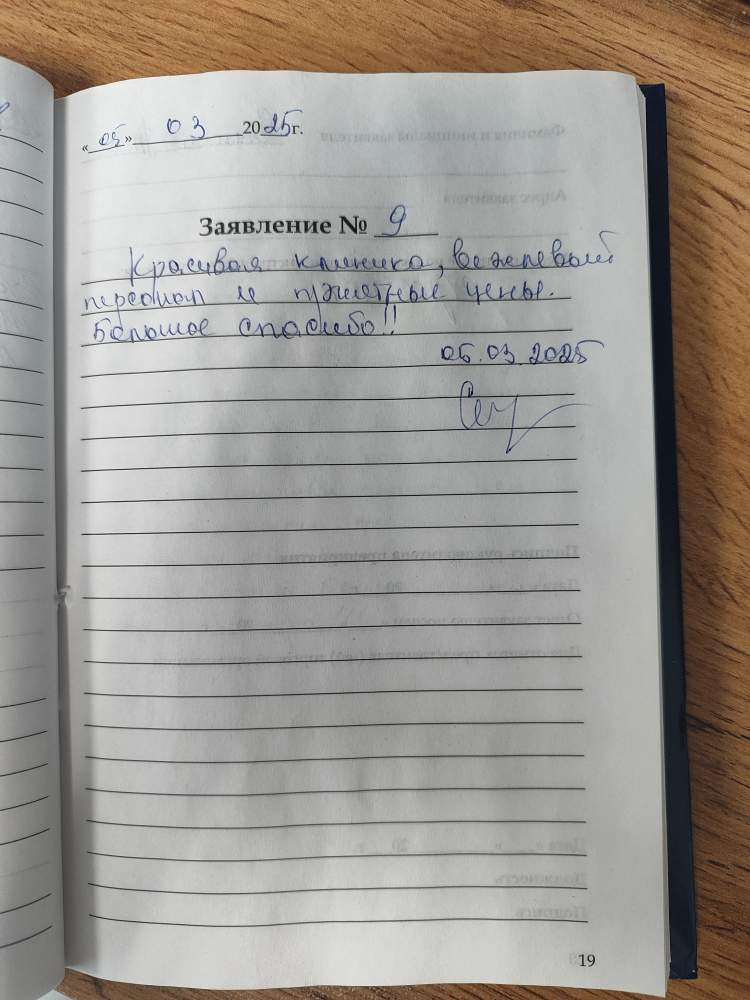 «05» 03 2025г.
Заявление № 9
Красивая клиника, вежливый
персонал и приятные цены.
Большое спасибо!!
05.03.2025
19